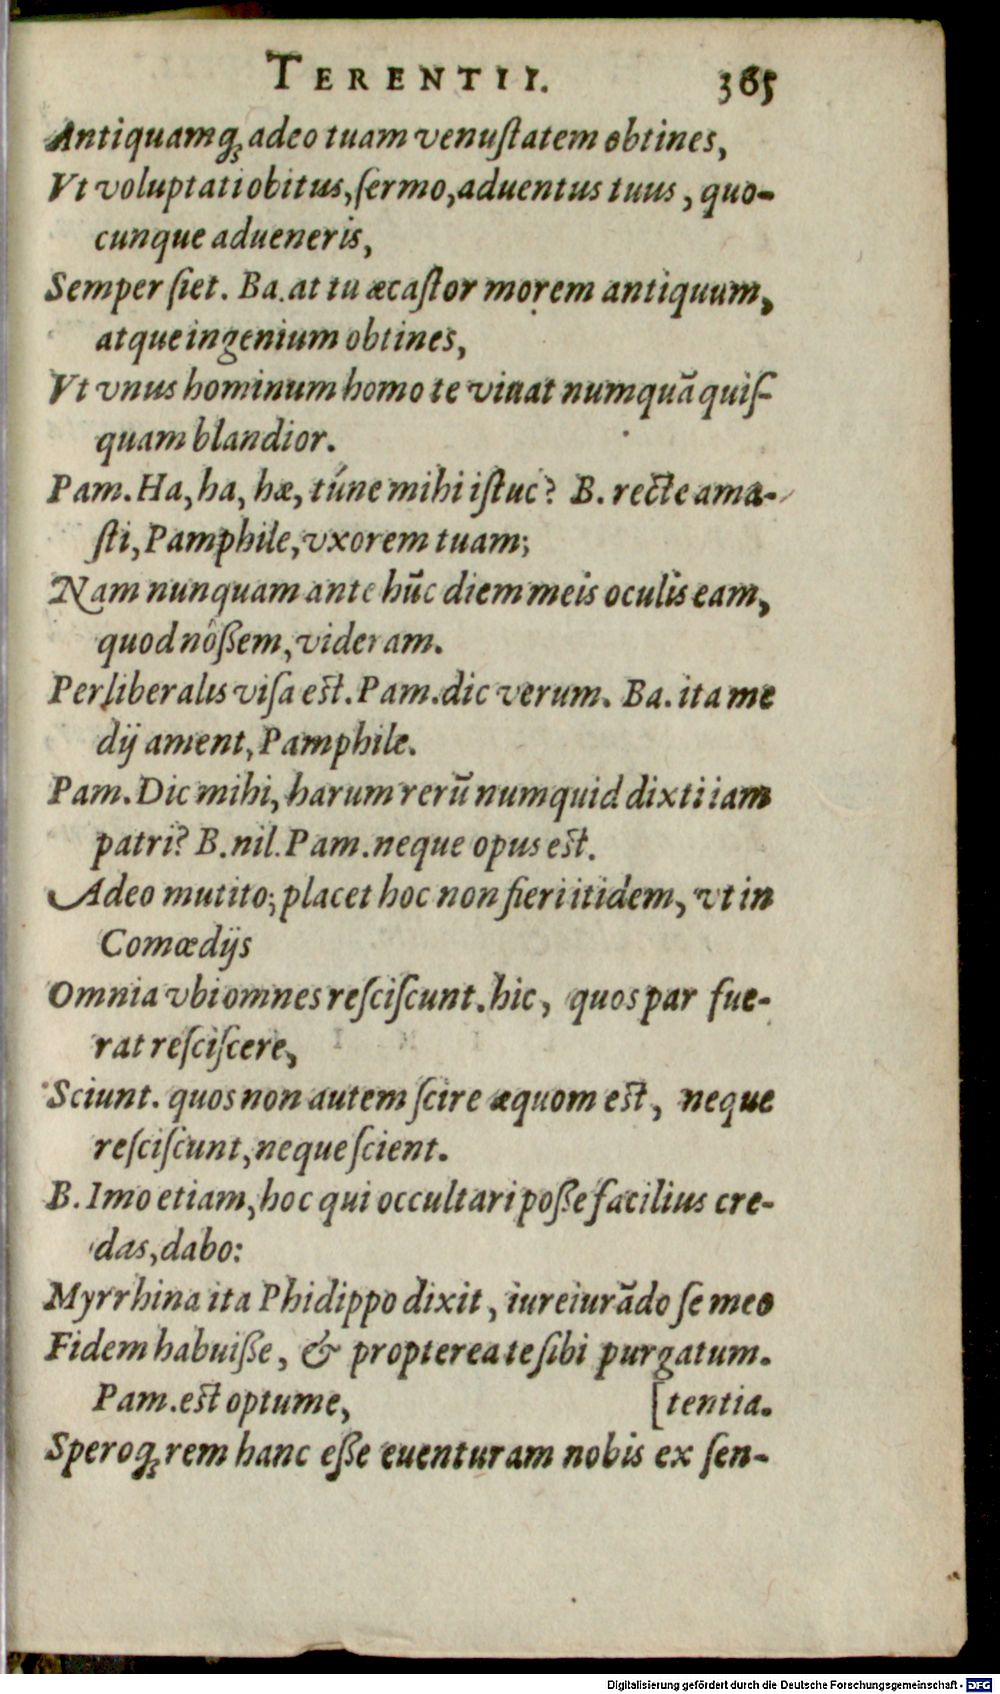 TERENTII. 365
Antiquamq̃ adeo tuam venuſtatem obtines,
Vt voluptati obitus, ſermo, aduentus tuus, quo-
cunque adueneris,
Semper ſiet. Ba. at tu æcaſtor morem antiquum,
atque ingenium obtines,
Vt vnus hominum homo te viuat numquā quiſ-
quam blandior.
Pam. Ha, ha, hæ, túne mihi iſtuc? B. recte ama-
ſti, Pamphile, vxorem tuam;
Nam nunquam ante hūc diem meis oculis eam,
quod nôßem, videram.
Perliberalis viſa eſt. Pam. dic verum. Ba. ita me
dij ament, Pamphile.
Pam. Dic mihi, harum rerū numquid dixti iam
patri? B. nil. Pam. neque opus eſt.
Adeo mutito; placet hoc non fieri itidem, vt in
Comœdijs
Omnia vbi omnes reſciſcunt. hic, quos par fue-
rat reſciſcere,
Sciunt. quos non autem ſcire æquom eſt, neque
reſciſcunt, neque ſcient.
B. Imo etiam, hoc qui occultari poße facilius cre-
das, dabo:
Myrrhina ita Phidippo dixit, iureiurādo ſe meo
Fidem habuiße, & propterea te ſibi purgatum.
Pam. eſt optume, [tentia.
Speroq̃ rem hanc eße euenturam nobis ex ſen-
Digitalisierung gefördert durch die Deutsche Forschungsgemeinschaft - DFG